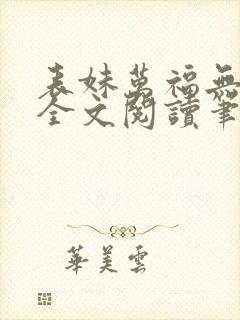 表妹萬福無
全文閱讀筆
華美雲